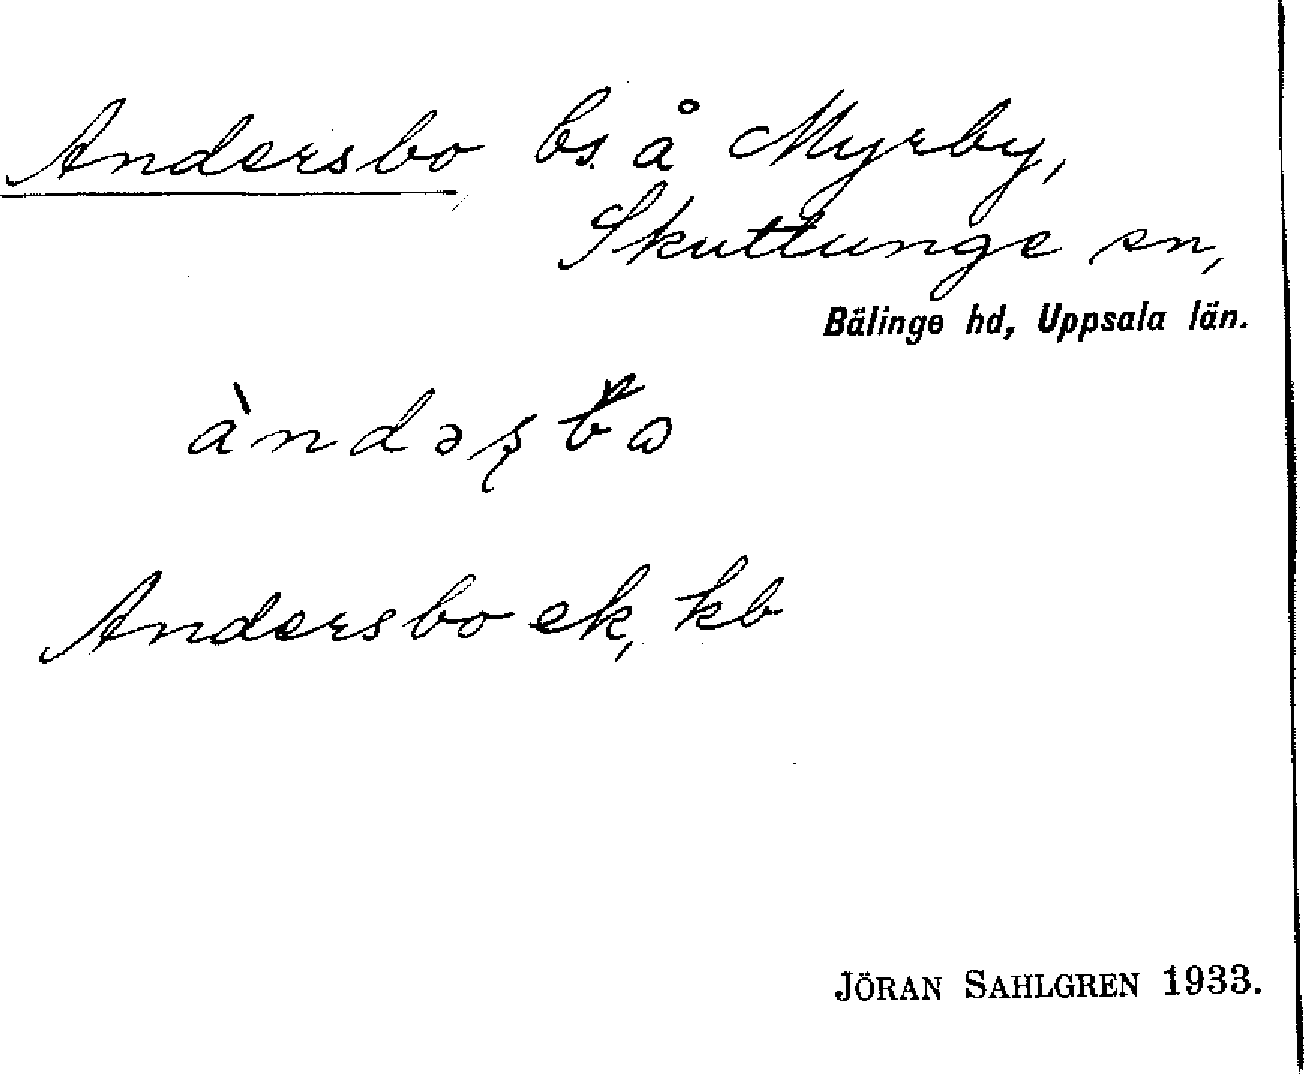 Andersbo bs. å Myrby,
Skuttunge sn,
Bälinge hd, Uppsala län.
Andersbo ek, kb
JÖRAN SAHLGREN 1933.